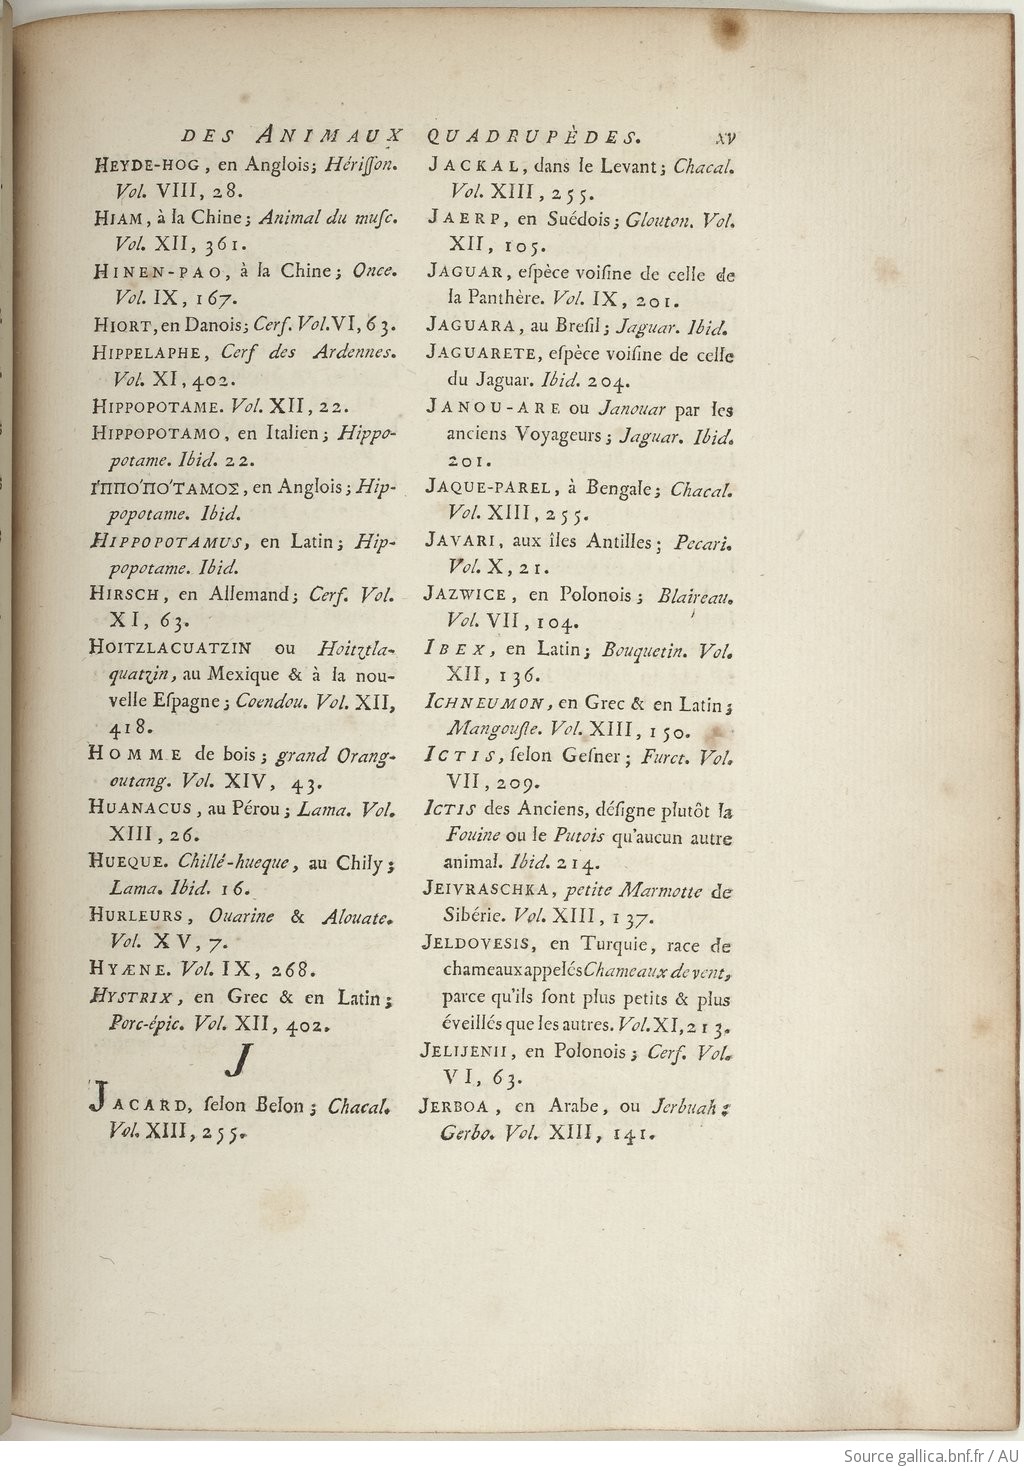 DES ANIMAUX QUADRUPÈDES. xv
HEYDE-HOG, en Anglois; Hériſſon.
Vol. VIII, 28.
HIAM, à la Chine; Animal du muſc.
Vol. XII, 361.
HINEN-PAO, à la Chine; Once.
Vol. IX, 167.
HIORT, en Danois; Cerf. Vol. VI, 63.
HIPPELAPHE, Cerf des Ardennes.
Vol. XI, 402.
HIPPOPOTAME. Vol. XII, 22.
HIPPOPOTAMO, en Italien; Hippo-
potame. Ibid. 22.
ἹΠΠΟΠΟΤΑΜΟΣ, en Anglois; Hip-
popotame. Ibid.
HIPPOPOTAMUS, en Latin; Hip-
popotame. Ibid.
HIRSCH, en Allemand; Cerf. Vol.
XI, 63.
HOITZLACUATZIN ou Hoitztla-
quatzin, au Mexique & à la nou-
velle Eſpagne; Coendou. Vol. XII,
418.
HOMME de bois; grand Orang-
outang. Vol. XIV, 43.
HUANACUS, au Pérou; Lama. Vol.
XIII, 26.
HUEQUE. Chillé-hueque, au Chily;
Lama. Ibid. 16.
HURLEURS, Ouarine & Alouate.
Vol. XV, 7.
HYÆNE. Vol. IX, 268.
HYSTRIX, en Grec & en Latin;
Porc-épic. Vol. XII, 402.
J
JACARD, ſelon Belon; Chacal.
Vol. XIII, 255.
JACKAL, dans le Levant; Chacal.
Vol. XIII, 255.
JAERP, en Suédois; Glouton. Vol.
XII, 105.
JAGUAR, eſpèce voiſine de celle de
la Panthère. Vol. IX, 201.
JAGUARA, au Breſil; Jaguar. Ibid.
JAGUARETE, eſpèce voiſine de celle
du Jaguar. Ibid. 204.
JANOU-ARE ou Janouar par les
anciens Voyageurs; Jaguar. Ibid.
201.
JAQUE-PAREL, à Bengale; Chacal.
Vol. XIII, 255.
JAVARI, aux îles Antilles; Pecari.
Vol. X, 21.
JAZWICE, en Polonois; Blaireau.
Vol. VII, 104.
IBEX, en Latin; Bouquetin. Vol.
XII, 136.
ICHNEUMON, en Grec & en Latin;
Mangouſte. Vol. XIII, 150.
ICTIS, ſelon Geſner; Furet. Vol.
VII, 209.
ICTIS des Anciens, déſigne plutôt la
Fouine ou le Putois qu'aucun autre
animal. Ibid. 214.
JEIVRASCHKA, petite Marmotte de
Sibérie. Vol. XIII, 137.
JELDOVESIS, en Turquie, race de
chameaux appelés Chameaux de vent,
parce qu'ils ſont plus petits & plus
éveillés que les autres. Vol. XI, 213.
JELIJENII, en Polonois; Cerf. Vol.
VI, 63.
JERBOA, en Arabe, ou Jerbuah;
Gerbo. Vol. XIII, 141.
Source gallica.bnf.fr / AU